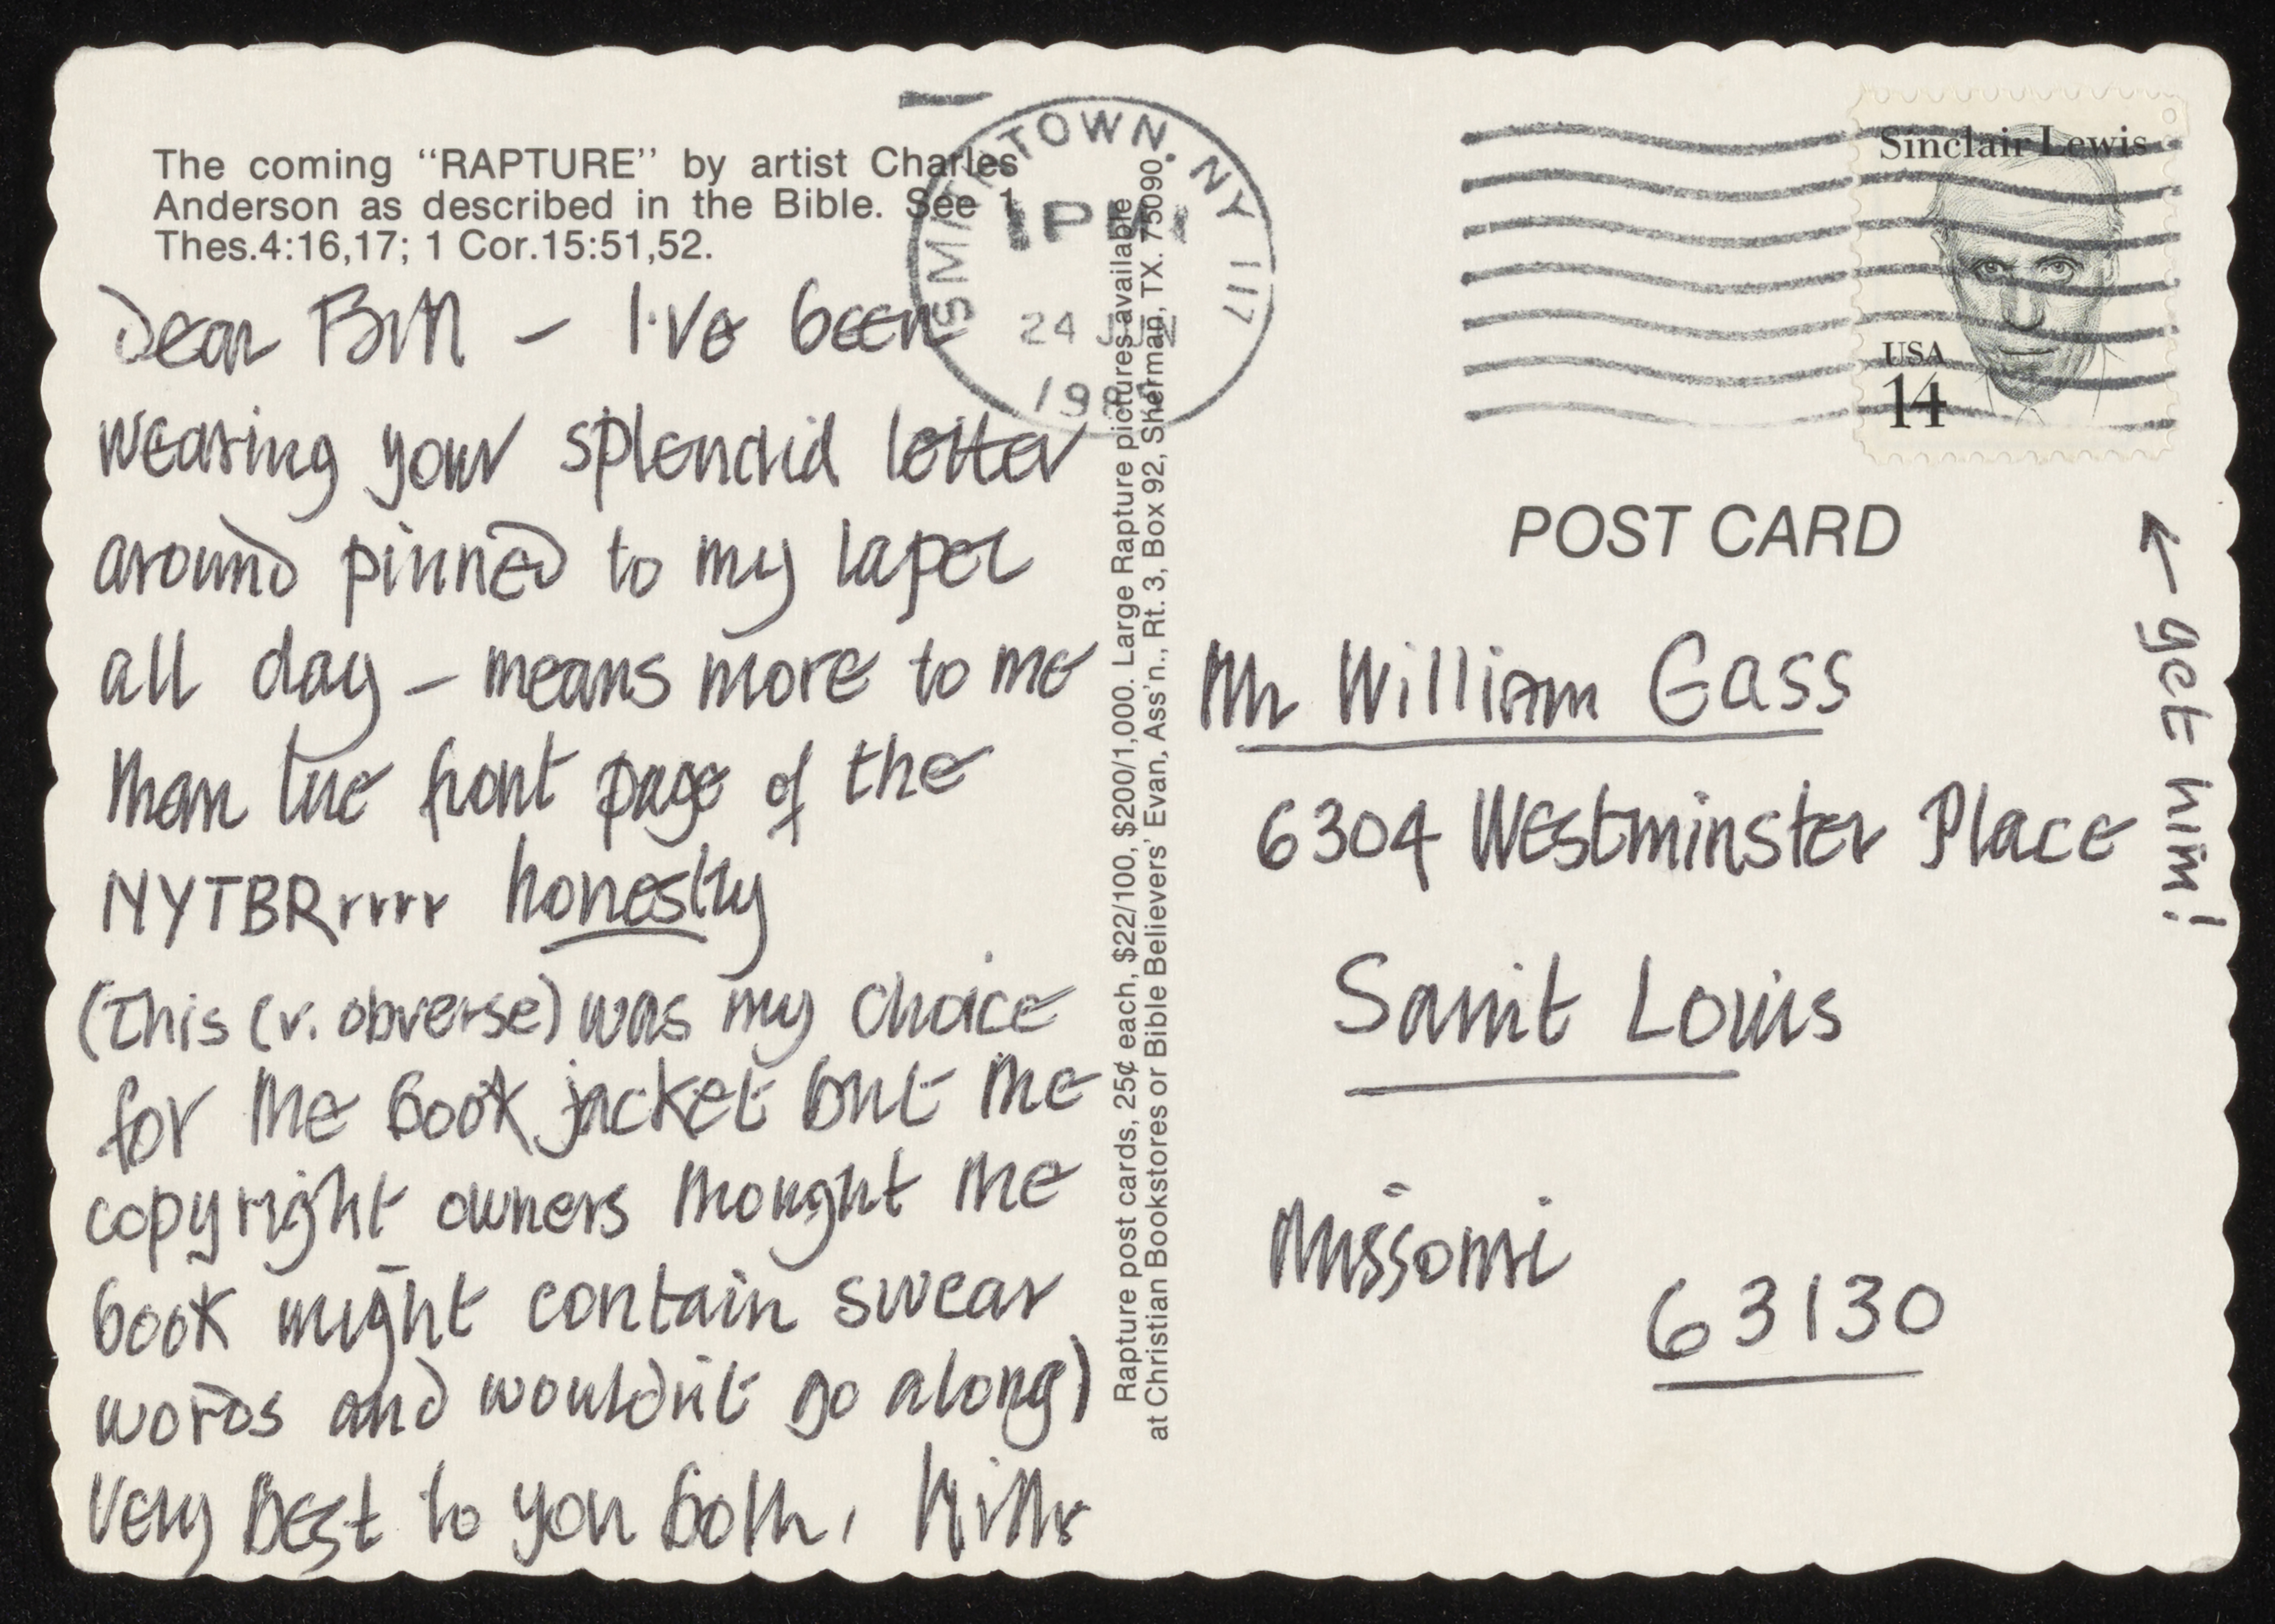 The coming “RAPTURE” by artist Charles
Anderson as described in the Bible. See 1
Thes.4:16,17; 1 Cor.15:51,52.
Dear Bill – I've been
wearing your splendid letter
around pinned to my lapel
all day – means more to me
than the front page of the
NYTBRrrrr honestly
(This (v. obverse) was my choice
for the book jacket but the
copyright owners thought the
book might contain swear
words and wouldn't go along)
Very Best to you both,
Rapture post cards, 25¢ each, $22/100, $200/1,000. Large Rapture pictures available
at Christian Bookstores or Bible Believers’ Evan, Ass’n., Rt. 3, Box 92, Sherman, TX. 75090
SMITHTOWN, NY 117
1PM
24
Sinclair Lewis
USA
14
POST CARD
← get him!
Mr William Gass
6304 Westminster Place
Saint Louis
Missouri
63130